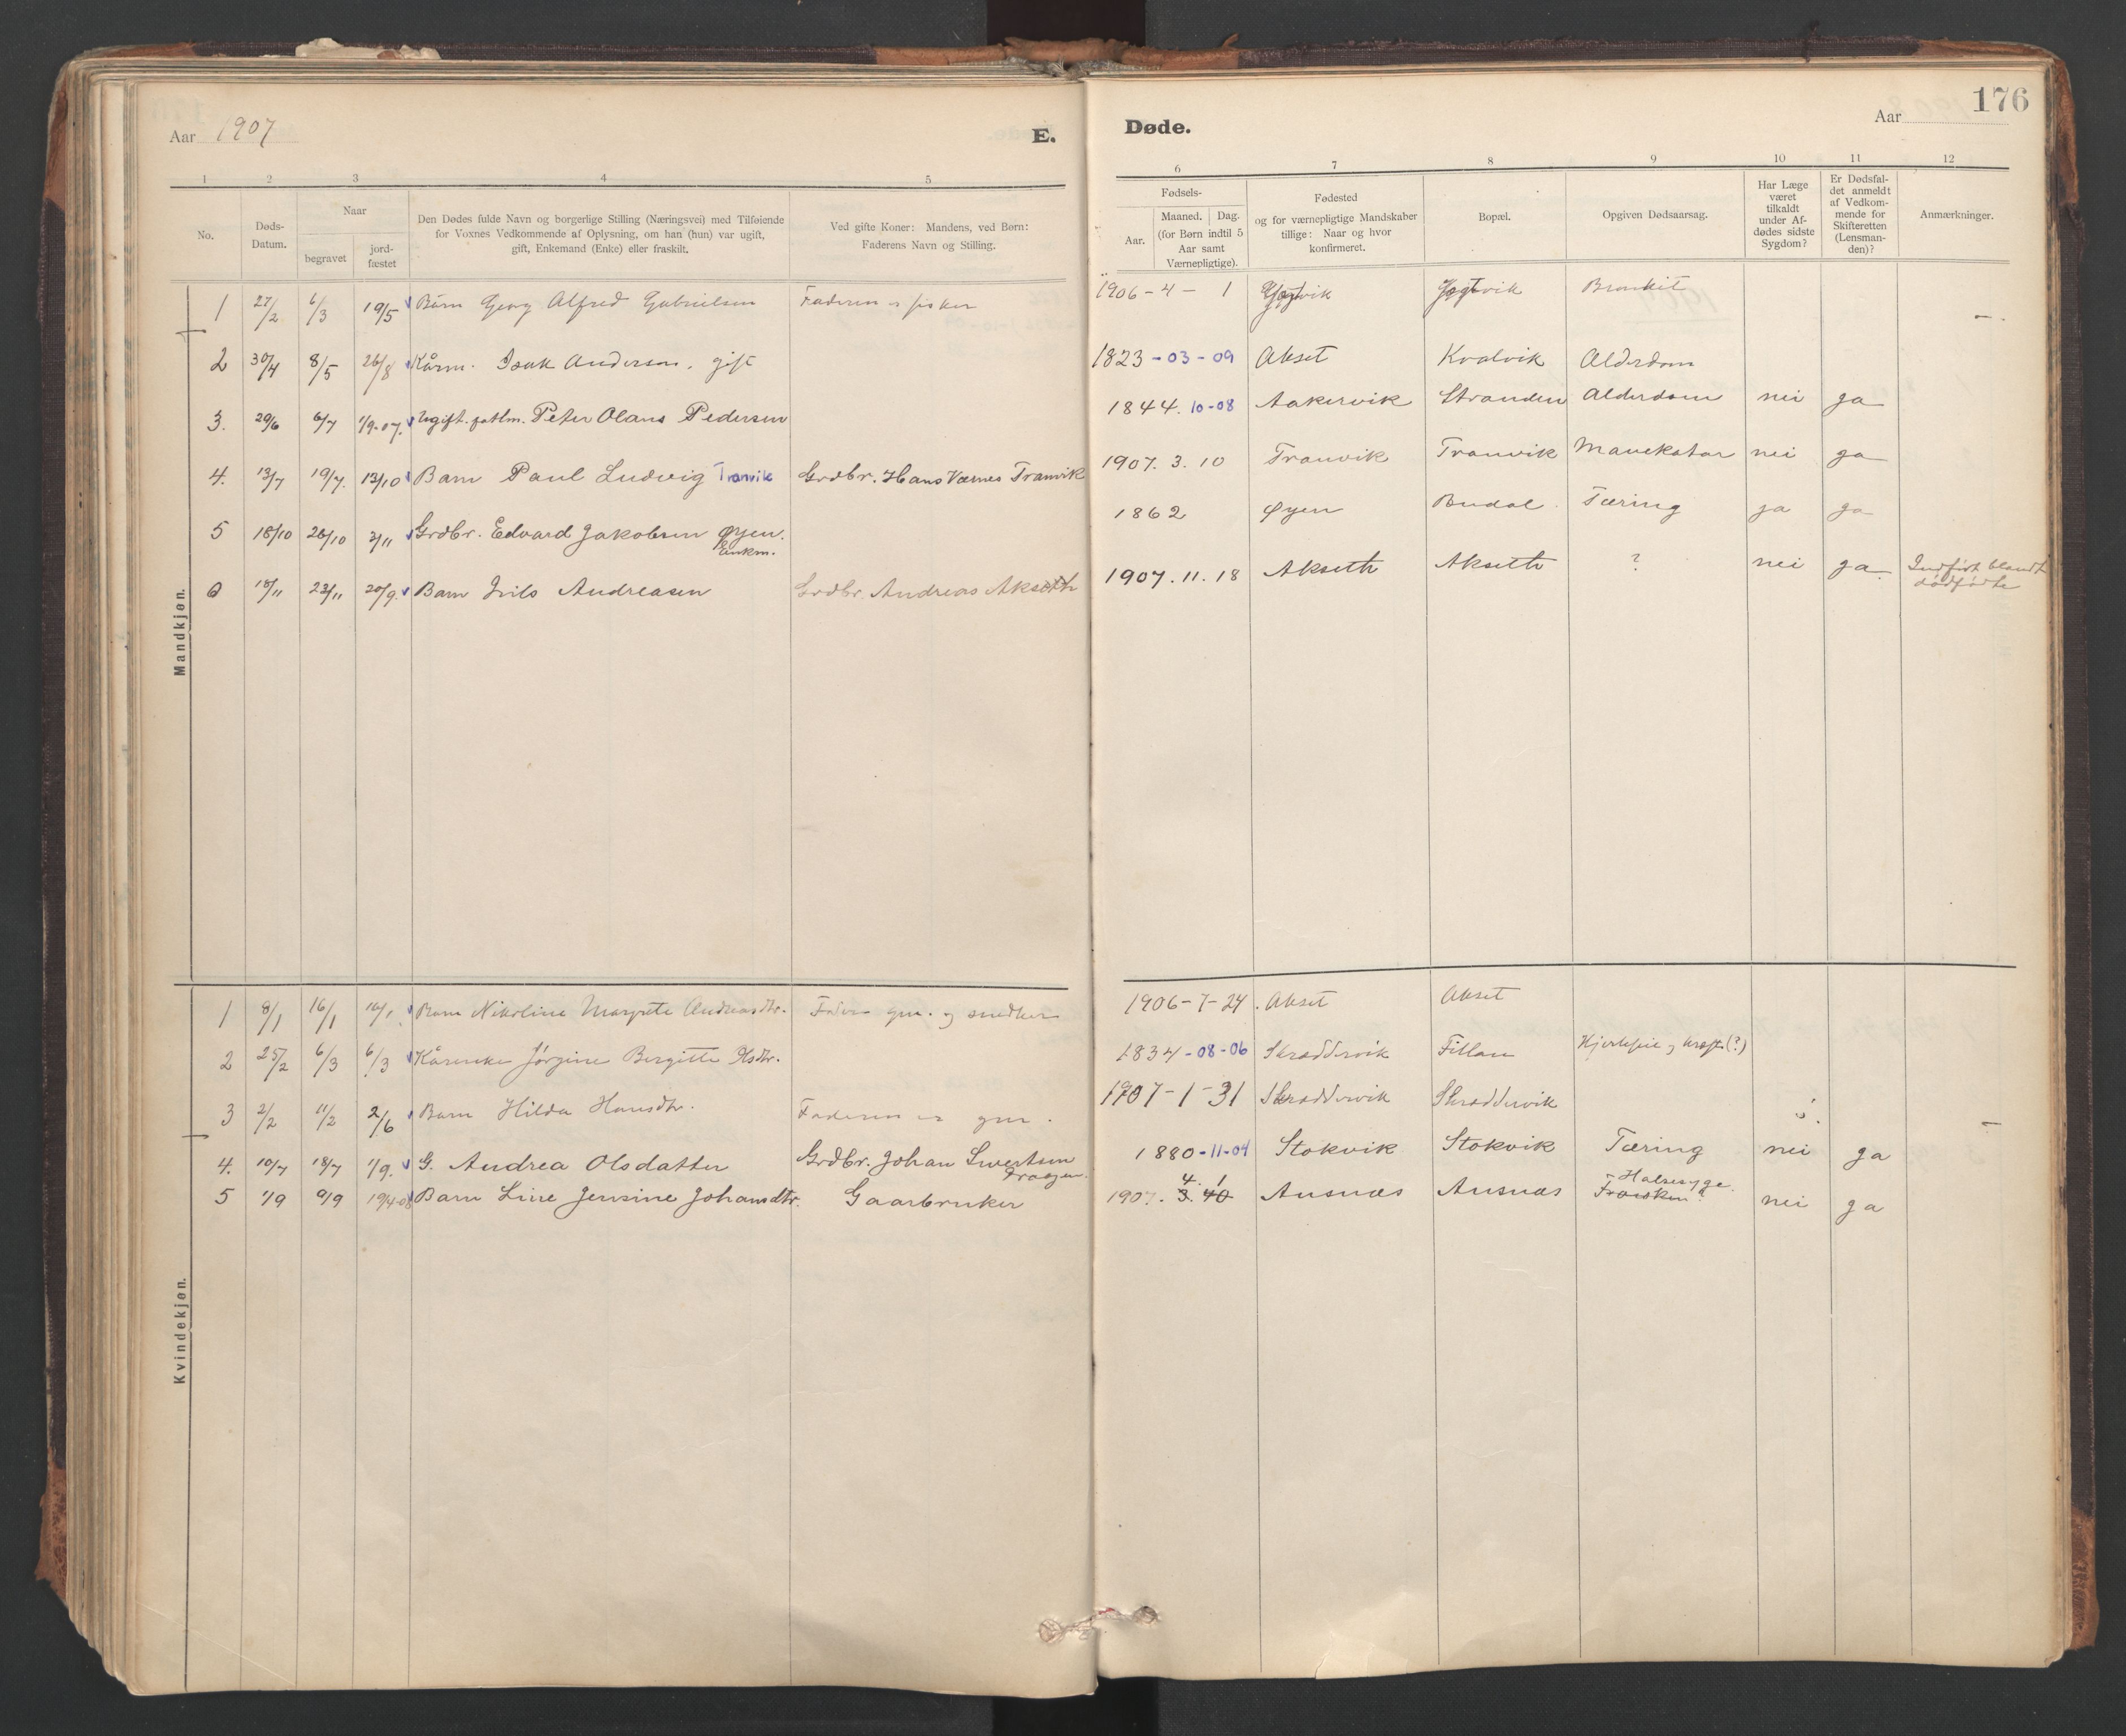 Aar 1907
E.
Døde.
Aar
176
1 2 3 4 5
6 7 8 9 10 11 12
No.
Døds-
Datum.
Naar
begravet
jord-
fæstet
Den Dødes fulde Navn og borgerlige Stilling (Næringsvei) med Tilføiende
for Voxnes Vedkommende af Oplysning, om han (hun) var ugift,
gift, Enkemand (Enke) eller fraskilt.
Ved gifte Koner: Mandens, ved Børn:
Faderens Navn og Stilling.
Fødsels-
Aar.
Maaned.
Dag.
(for Børn indtil 5
Aar samt
Værnepligtige).
Fødested
og for værnepligtige Mandskaber
tillige: Naar og hvor
konfirmeret.
Bopæl.
Opgiven Dødsaarsag.
Har Læge
været
tilkaldt
under Af-
dødes sidste
Sygdom?
Er Dødsfal-
det anmeldt
af Vedkom-
mende for
Skifteretten
(Lensman-
den)?
Anmærkninger.
Mandkjøn.
1 27/2 6/3 19/5 Barn Georg Alfred Gabrielsen Faderen er fisker 1906-4-1 Bronkit
2 30/4 8/5 26/8 Kårm. Isak Anderson, gift 1823-03-09 Akset Kvalvik Alderdom
3. 29/6 6/7 1/9-07. Ugift. Peter Olaus Pedersen 1844. 10-08 Aakervik Stranden Alderdom nei ja
4. 13/7 19/7. 13/10 Barn Paul Ludvig Tranvik Grdbr. Hans Værnes Tranvik 1907. 3. 10 Tranvik Tranvik Mavekatar nei ja
5 18/10 26/10 3/11 Grdbr. Edvard Jakobsen Øyen.
Enkm.
1862 Øyen Budal. Tæring ja ja
6 18/11 23/11 20/9. Barn Nils Andreasen Grdbr. Andreas Akseth 1907. 11. 18 Akseth Akseth ? nei ja. Indført blandt
dødfødte
Kvindekjøn.
1 8/1 16/1 16/1 Barn Nikoline Margrete Andreasdtr. Faderen gm. og snedker 1906-7-24. Akset Akset
2 25/2 6/3 6/3 Kårenke Jørgine Bergitte Olsdtr. 1834-08-06 Skraddervik Fillan (?)
3 2/2 11/2 2/6 Barn Hilda Hansdtr. Faderen er gm. 1907-1-31 Skraddervik Skraddervik
4. 10/7 18/7 1/9. G. Andrea Olsdatter Grdbr. Johan Sivertsen
1880-11-04 Stokvik Stokvik Tæring nei ja
5 1/9 9/9 19/4-08 Barn Line Jensine Johansdtr. Gaarbruker 1907. 3. 10 4. 1 Ausnæs Ausnæs Halsesyge. nei ja